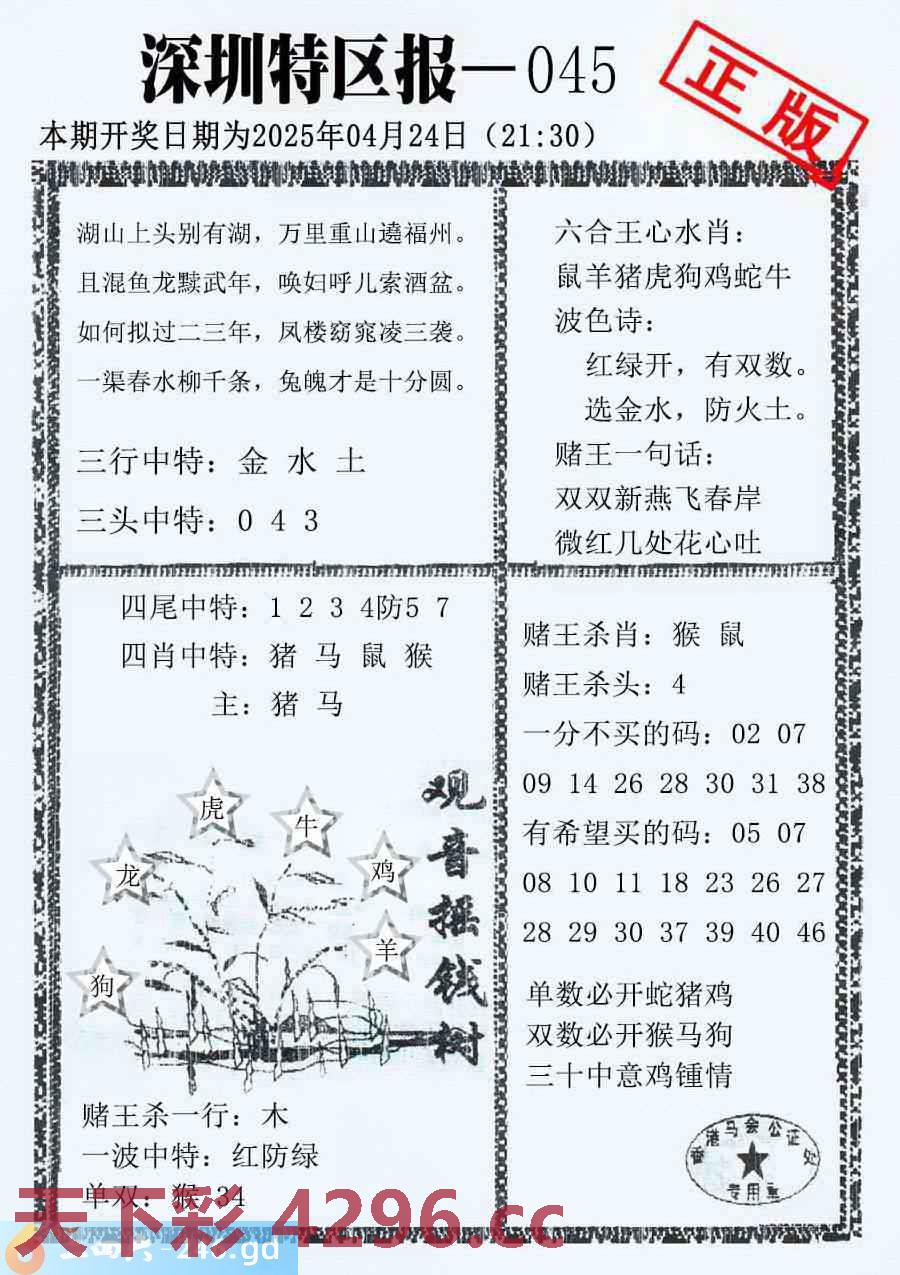 深圳特区报—045
正版
本期开奖日期为2025年04月24日（21:30）
湖山上头别有湖，万里重山遶福州。
且混鱼龙黩武年，唤妇呼儿索酒盆。
如何拟过二三年，凤楼窈窕凌三袭。
一渠春水柳千条，兔魄才是十分圆。
三行中特：金 水 土
三头中特：0 4 3
六合王心水肖：
鼠羊猪虎狗鸡蛇牛
波色诗：
红绿开，有双数。
选金水，防火土。
赌王一句话：
双双新燕飞春岸
微红几处花心吐
四尾中特：1 2 3 4防5 7
四肖中特：猪 马 鼠 猴
主：猪 马
观音摇钱树
虎
牛
龙
鸡
羊
狗
赌王杀一行：木
一波中特：红防绿
单双：猴 34
赌王杀肖：猴 鼠
赌王杀头：4
一分不买的码：02 07
09 14 26 28 30 31 38
有希望买的码：05 07
08 10 11 18 23 26 27
28 29 30 37 39 40 46
单数必开蛇猪鸡
双数必开猴马狗
三十中意鸡锺情
香港马会公证处
专用章
天下彩 4296.cc
246.gd